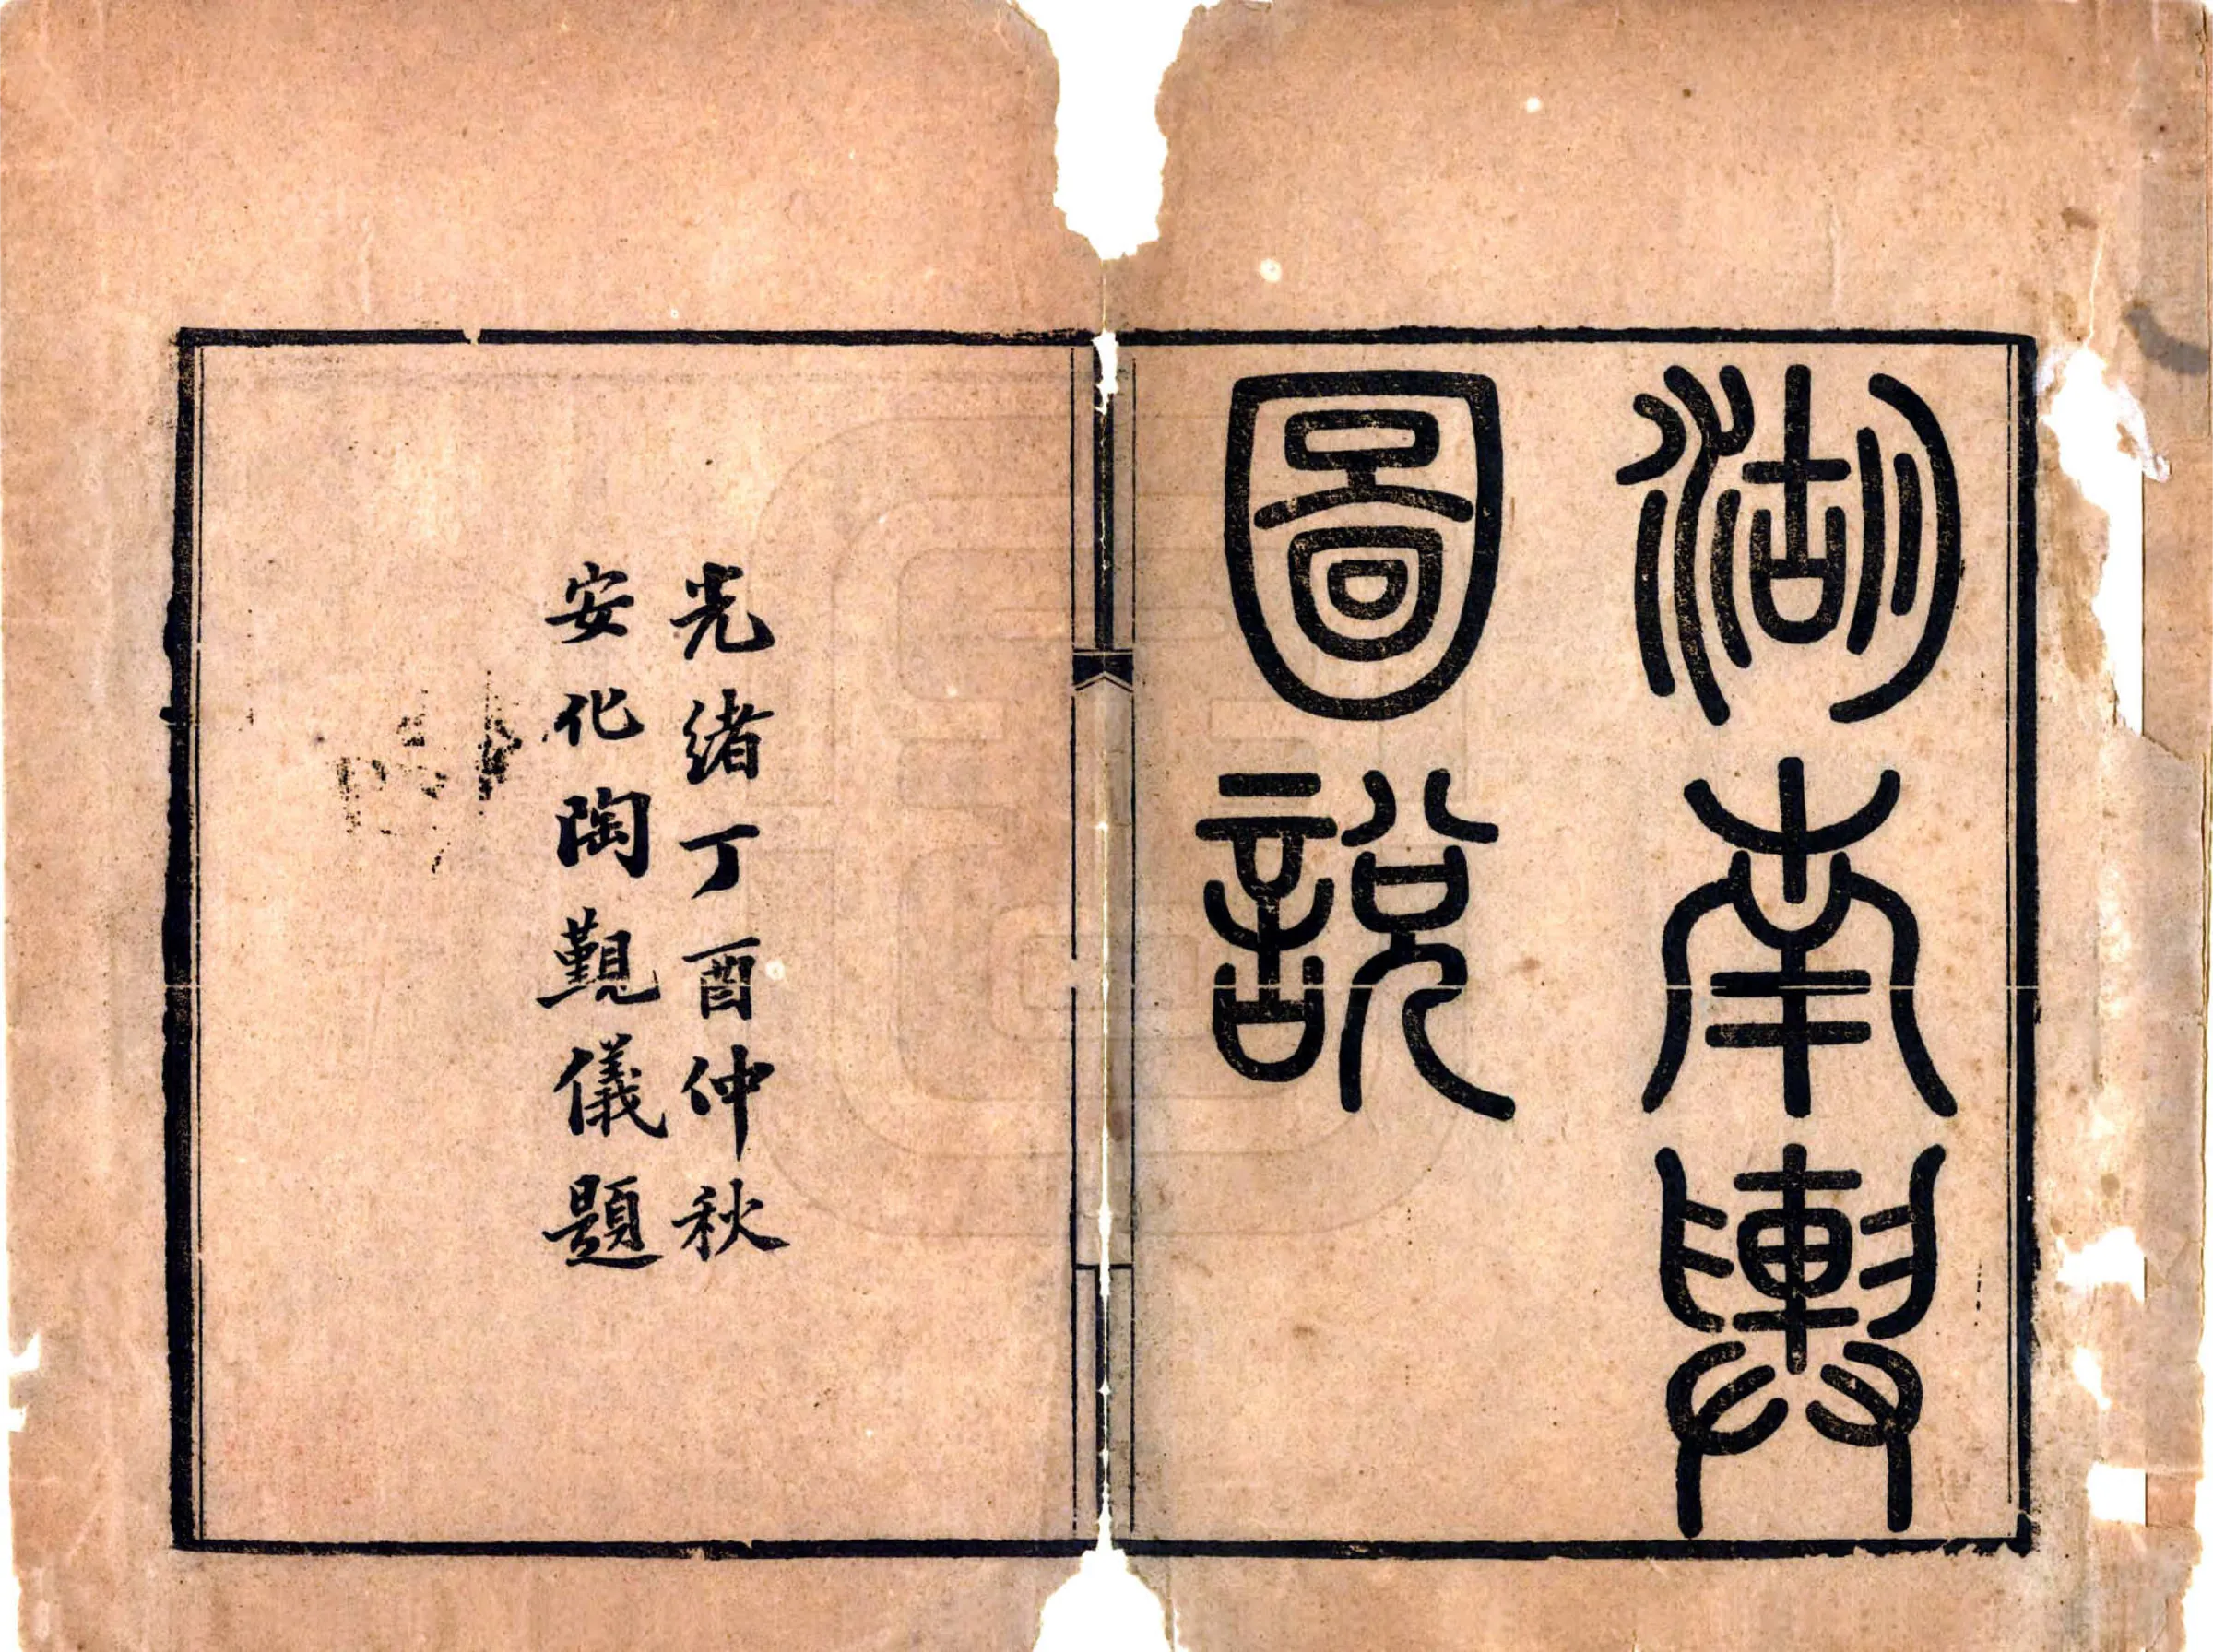 湖南輿
圖說
光緒丁酉仲秋
安化陶覲儀題